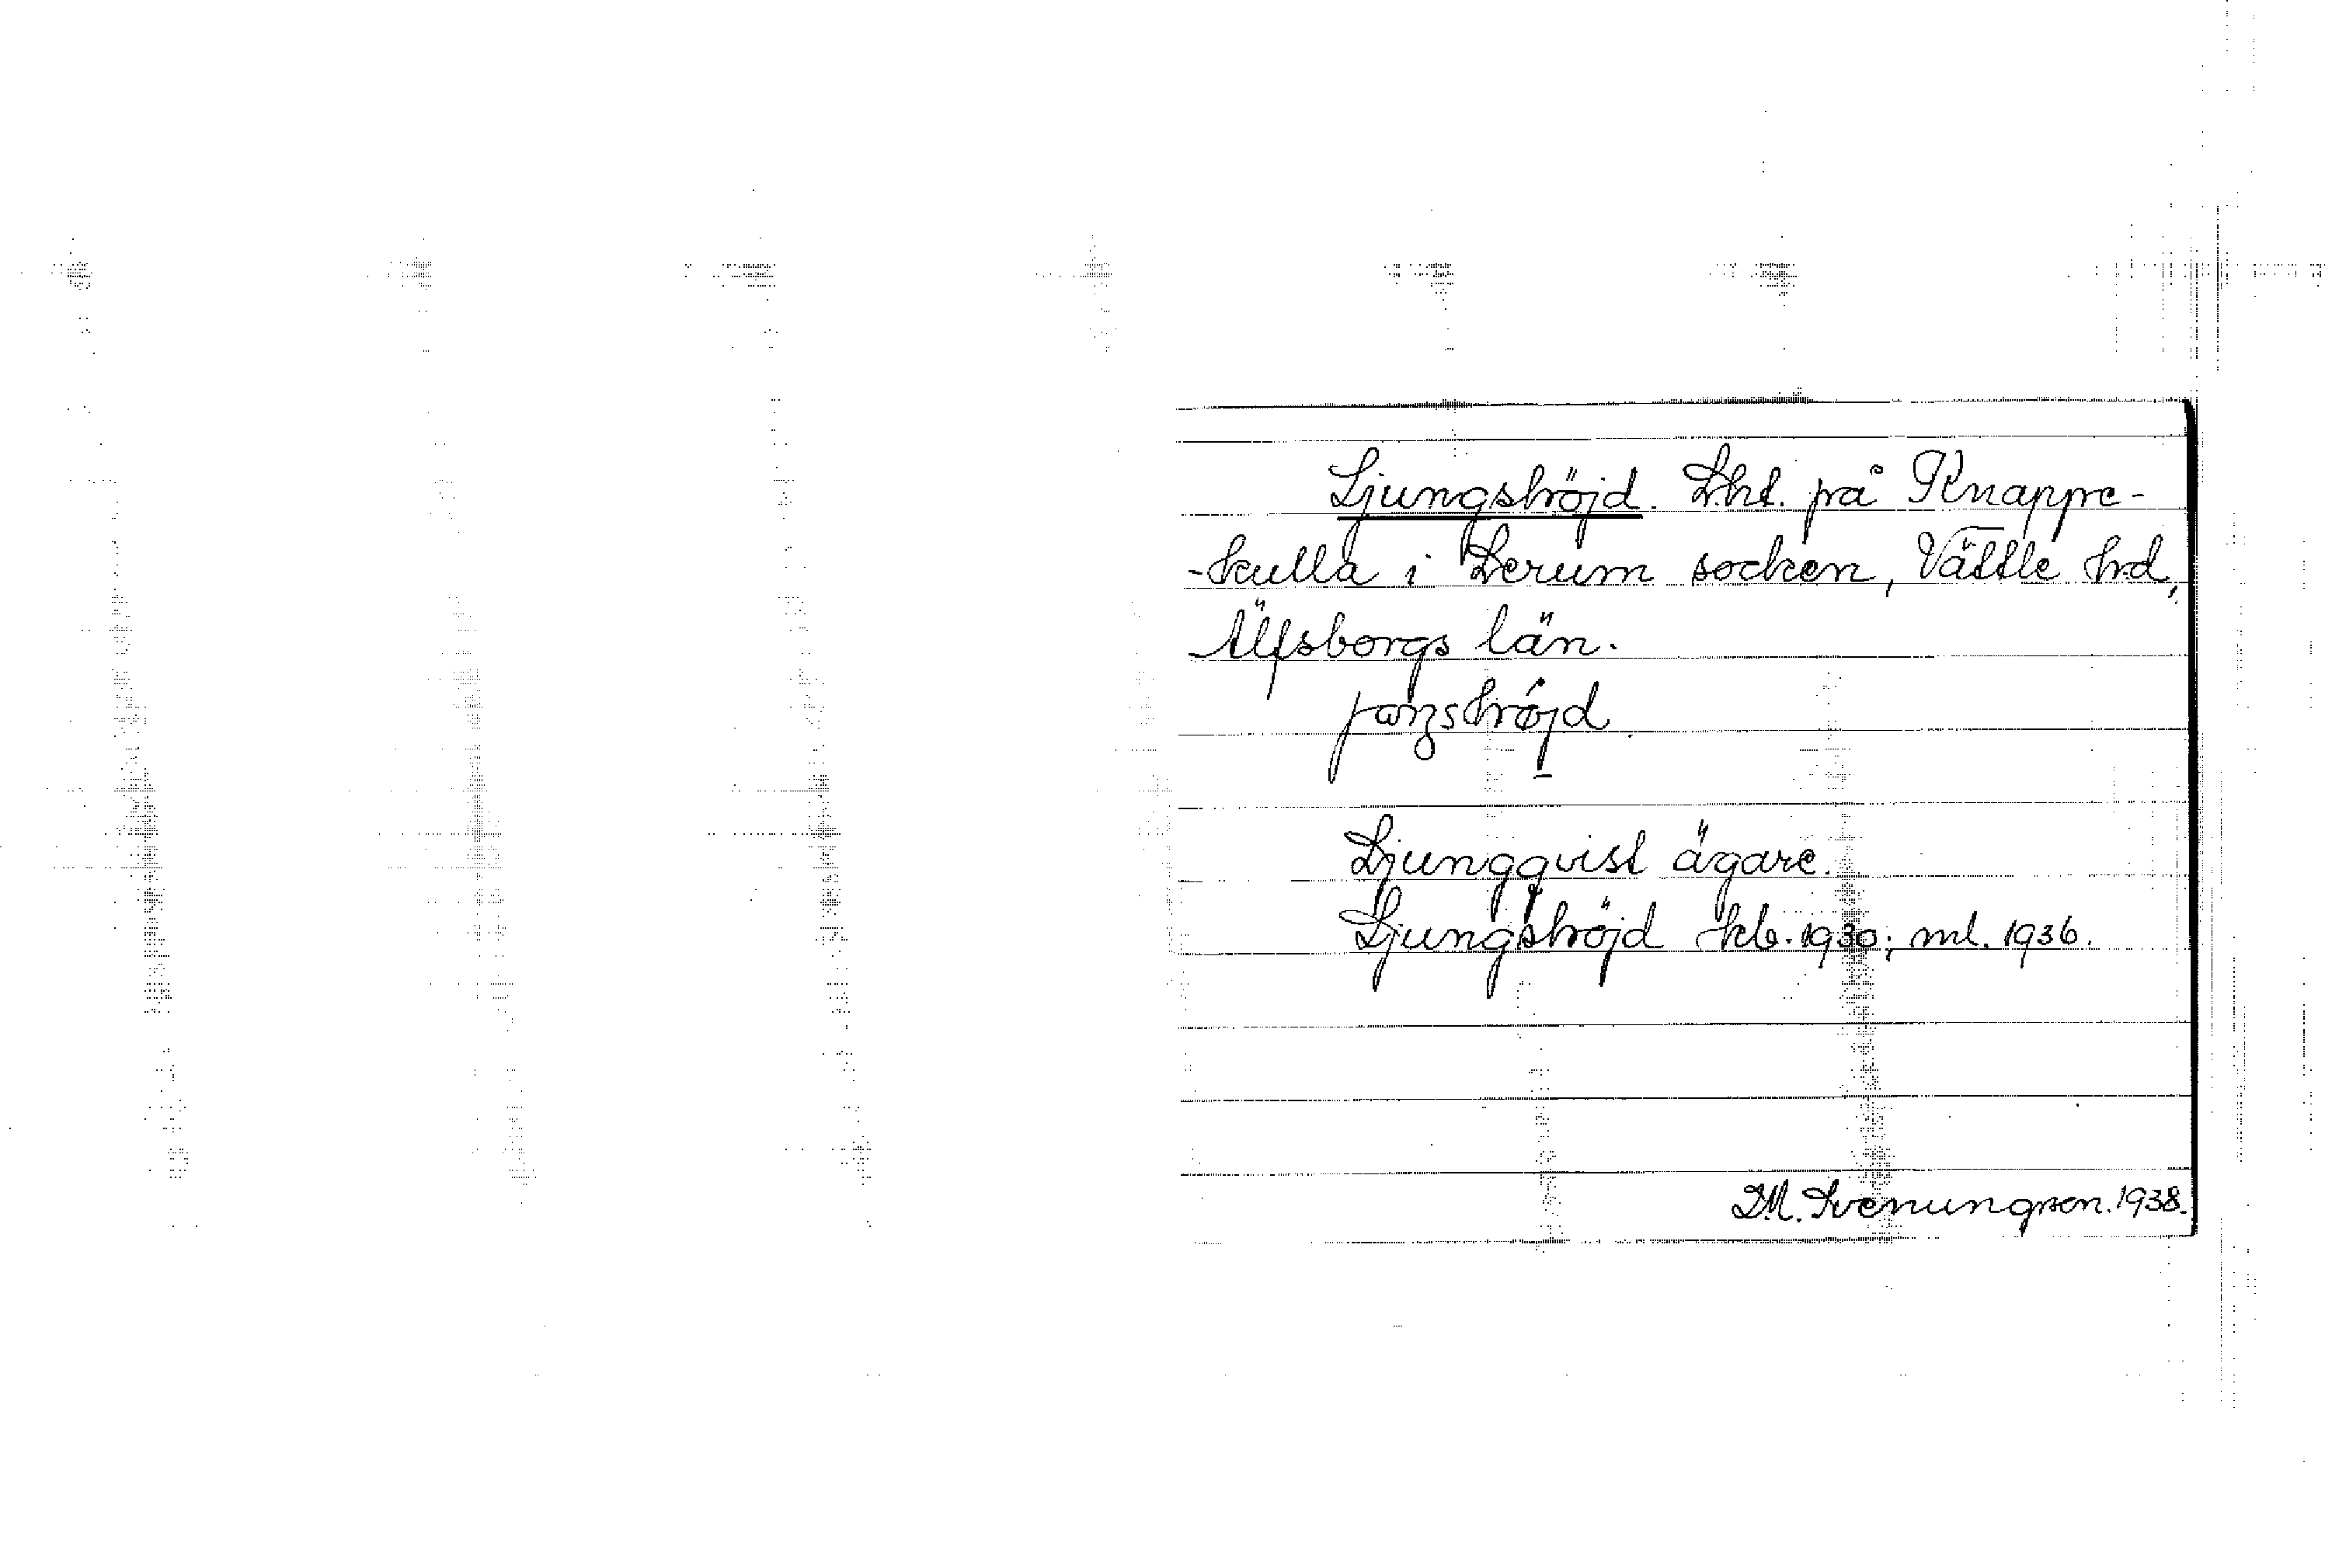 Ljungshöjd. Lht. på Knappe-
-kulla i Lerum socken, Vättle hd,
Älfsborgs län.
Ljungqvist ägare.
Ljungshöjd kb. 1930; ml. 1936.
D.M. Svenungsson. 1938.